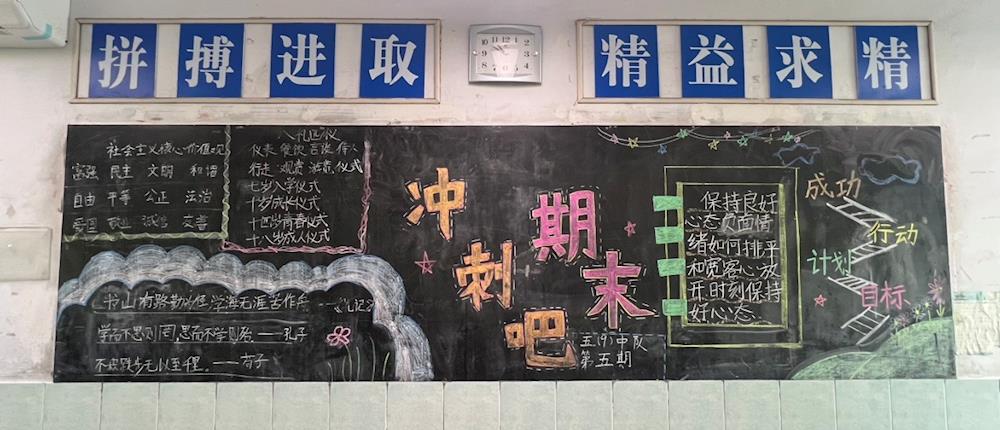 拼搏进取
精益求精
社会主义核心价值观
富强 民主 文明 和谐
自由 平等 公正 法治
爱国 敬业 诚信 友善
八礼四仪
仪表 餐饮 言谈 待人
行走 观赏 游览 仪式
七岁入学仪式
十岁成长仪式
十四岁青春仪式
十八岁成人仪式
书山有路勤为径 学海无涯苦作舟
学而不思则罔,思而不学则殆 ——孔子
不积跬步无以至千里。——荀子
冲刺期末吧
五(9)中队
第五期
保持良好
心态负面情
绪如何排平
和宽容心放
开时刻保持
好心态
成功
行动
计划
目标